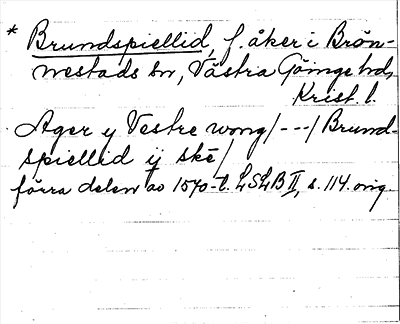 * Brundspiellid, f. åker i Brön-
nestads sn, Västra Göinge hd,
Krist. l.
Ager y Vestre wong/---/Brund-
spiellid ij skē/
förra delen av 1570-t. LSLB II, s. 114 orig.